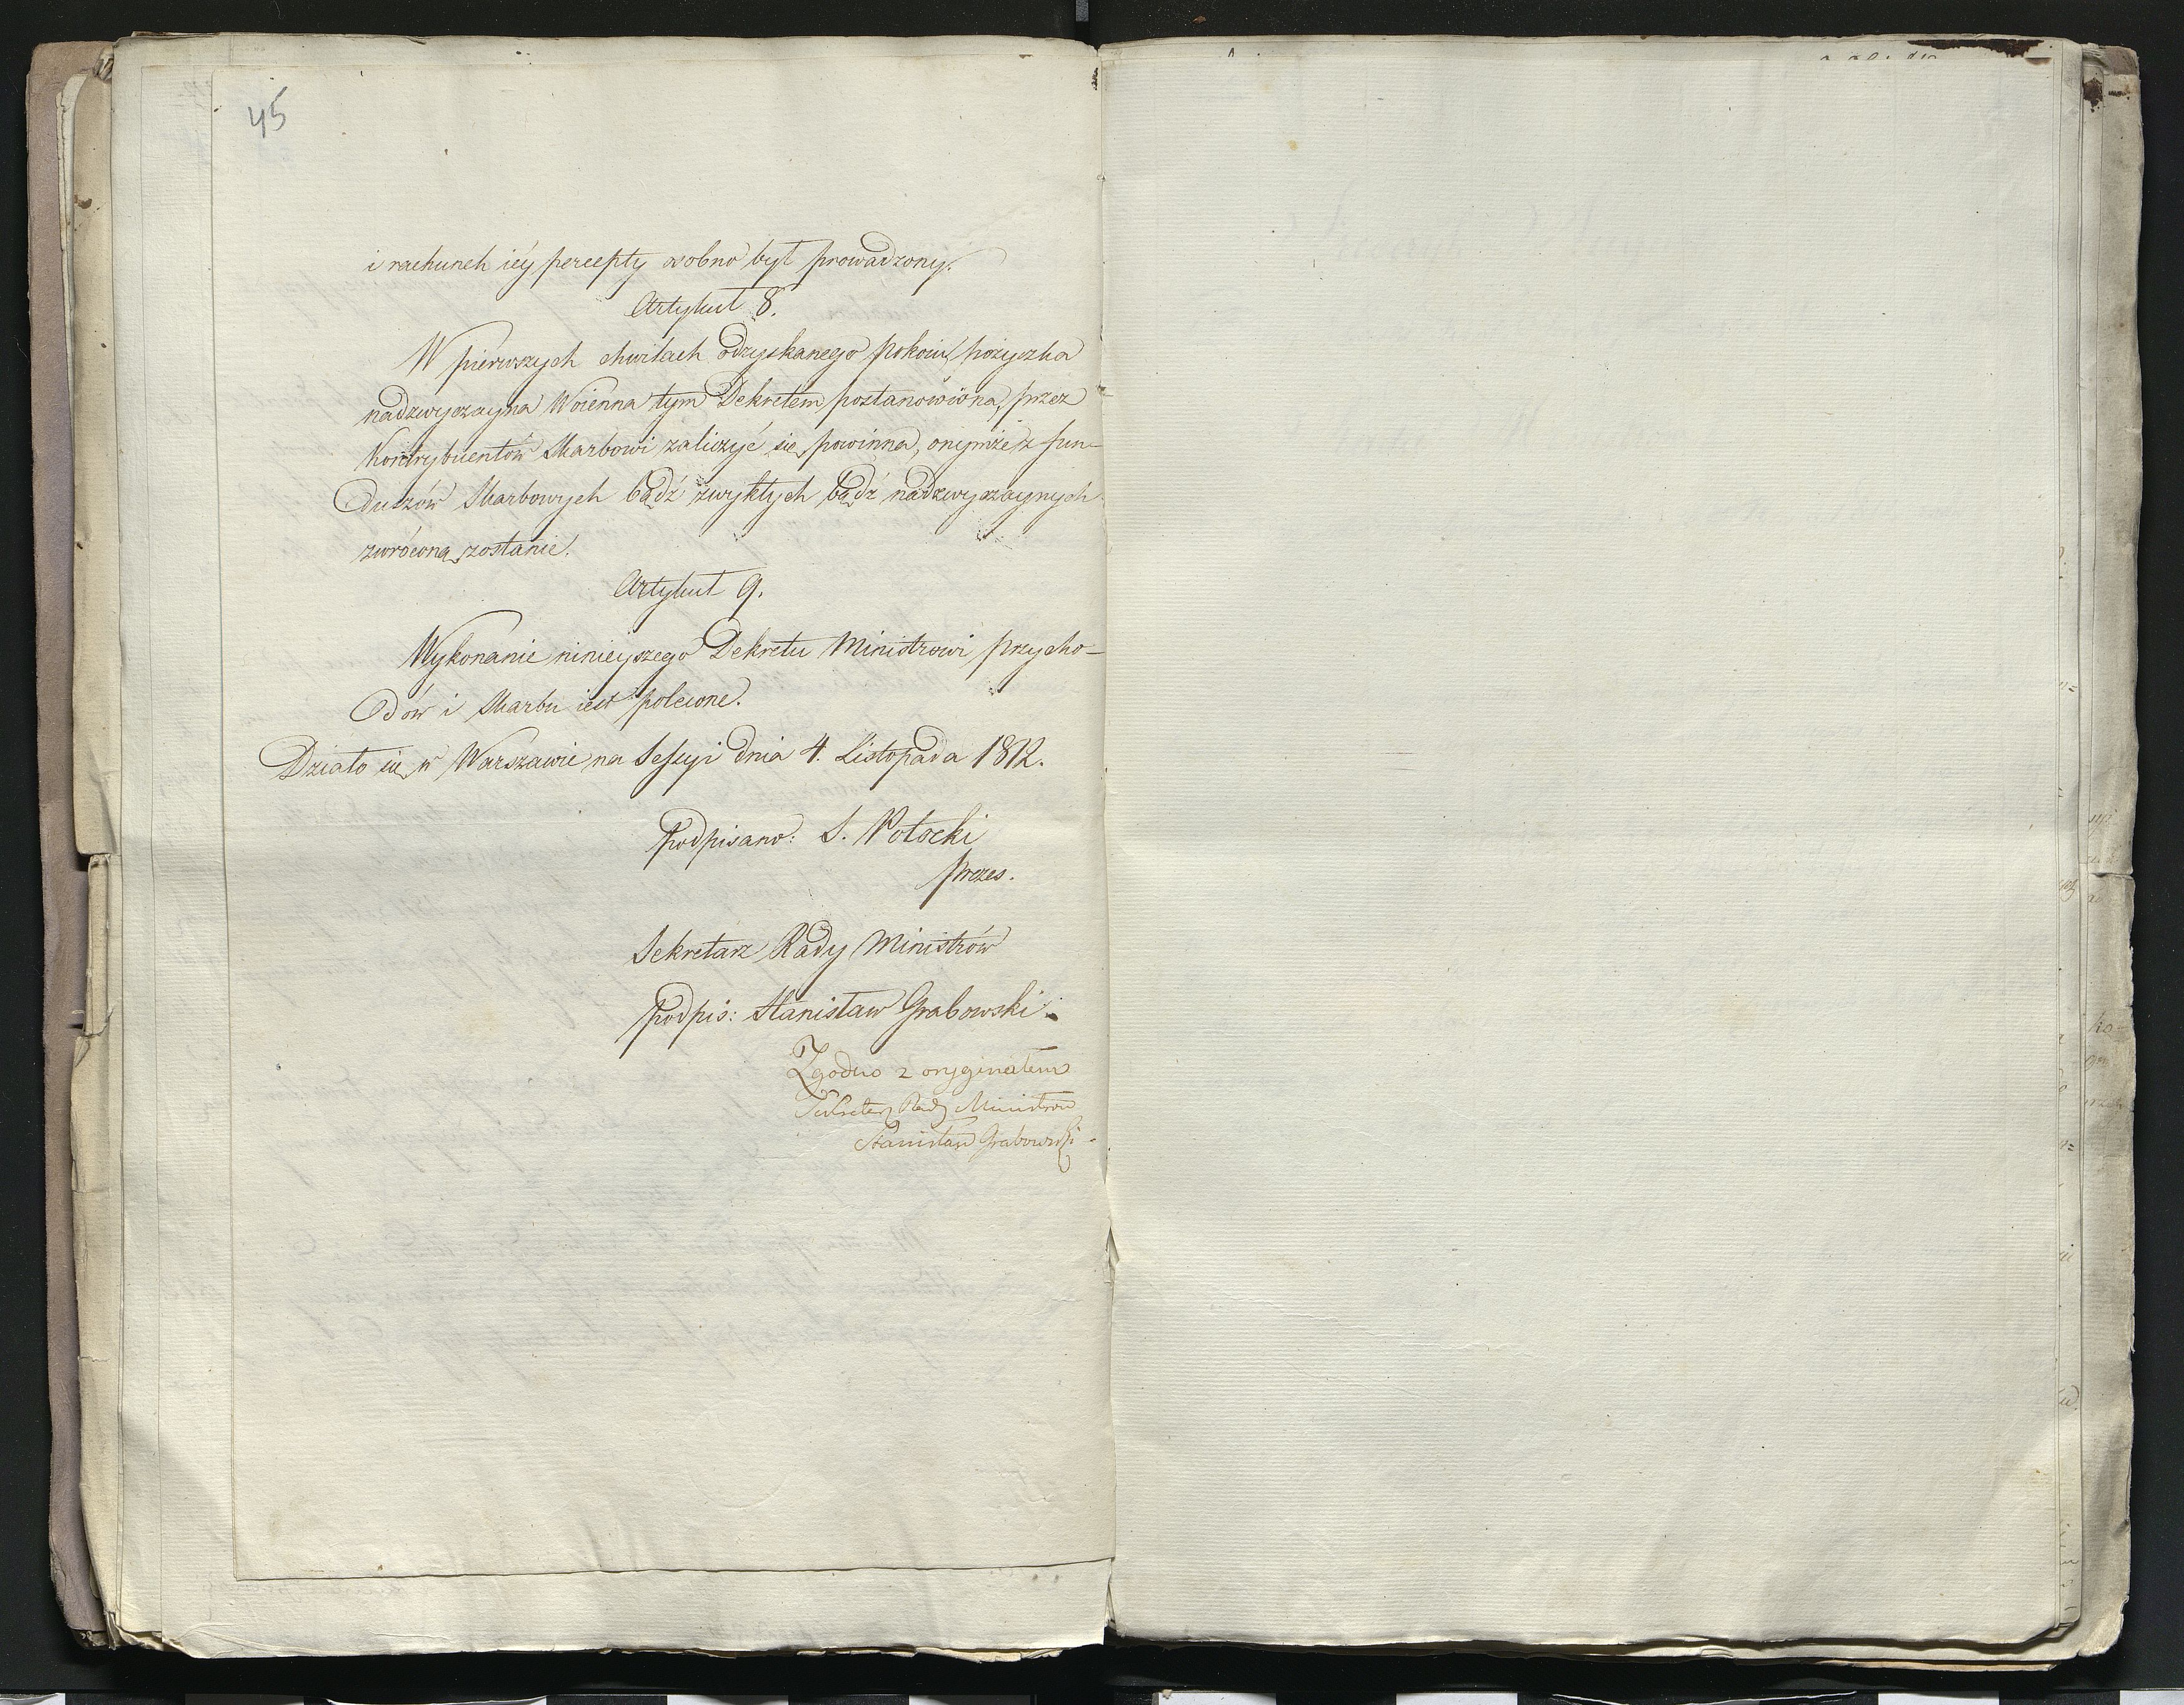 45
i rachunek iéy percepty osobno był prowadzony.
Artykuł 8.
W pierwszych chwilach odzyskanego pokoiu pożyczka
nadzwyczayna Woienna tym Dekretem postanowiona, przez
Kontrybuentów Skarbowi zaliczyć się powinna, onymże z fun-
duszów Skarbowych bądź zwykłych bądź nadzwyczaynych
zwróconą zostanie.
Artykuł 9.
Wykonanie ninieyszego Dekretu Ministrowi przycho-
dów i Skarbu iest polecone.
Działo się w Warszawie na Sessyi dnia 4. Listopada 1812.
Podpisano: S. Potocki
Prezes.
Sekretarz Rady Ministrów
podpis: Stanisław Grabowski.
Zgodno z oryginałem
Sekretarz Rady Ministrów
Stanisław Grabowski